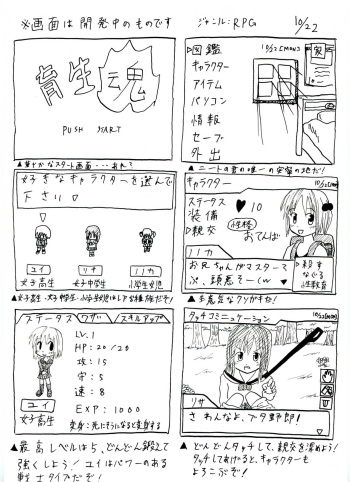 ※画面は開発中のものです
ジャンル:RPG
10/22
育生魂
PUSH START
▲華やかなスタート画面・・・あれ?
▷図鑑
キャラクター
アイテム
パソコン
情報
セーブ
外出
10/22(MON)
▲ニートの君の唯一の安留の地だ!
好きなキャラクターを選んで
下さい ▽
ユイ
女子高生
リナ
女子中学生
ノノカ
小学生女児
キャラクター
10/22(MON)
ステータス
装備
▷親交
♥10
性格
おてんば
ノノカ
お兄ちゃんがマスターて
▷殺す
なぐる
性教育
▲生意気なクソガキめ!
ステータス
ワザ
スキルアップ
LV.1
HP:20/20
攻:15
守:5
速:8
EXP:1000
ユイ
女子高生
▲最高レベルは5、どんどん鍛えて
強くしよう!ユイはパワーのある
戦士タイプだぞ!
タッチコミュニケーション
10/22(MON)
リサ
さわんなよ、ブタ野郎!
▲どんどんタッチして、親交を深めよう!
タッチしてあげると、キャラクターも
よろこぶぞ!